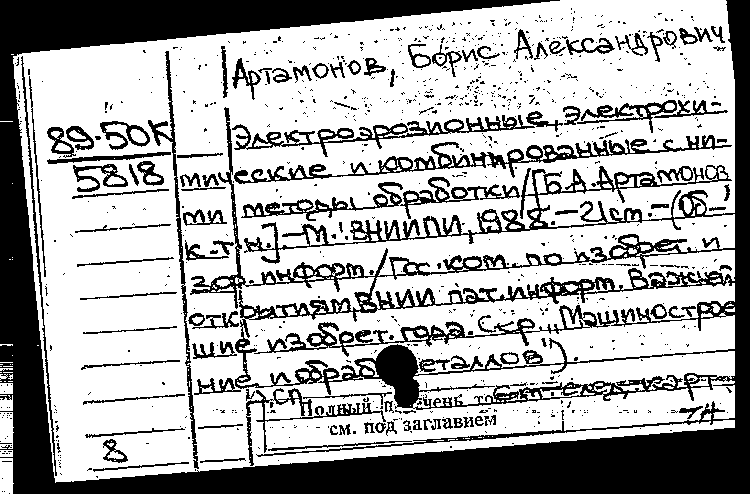 Артамонов, Борис Александрович.
89-50К
5818
Электроэрозионные, электрохи-
мические и комбинированные с ни-
ми методы обработки/[Б.А. Артамонов
к.т.н.]. - М.: ВНИИПИ, 1988. - 21 ст. - (Об-
зор. информ. / Гос. ком. по изобрет. и
открытиям, ВНИИ пат. информ. Важней
шие изобрет. года. Сер. „Машинострое
ние и обраб металлов").
Полный перечень
см. под заглавием
8